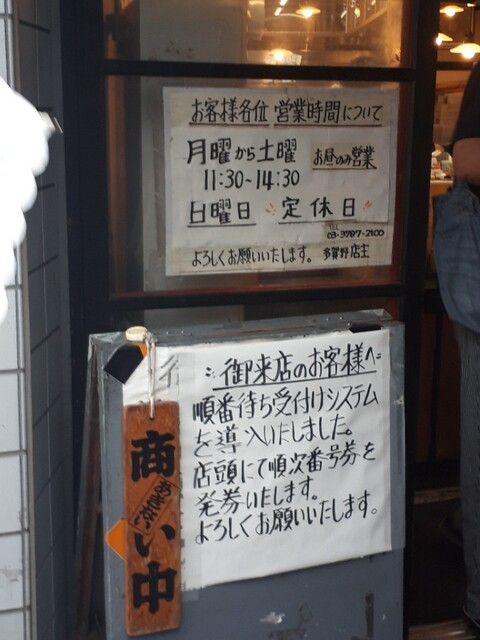 お客様各位 営業時間について
月曜から土曜 お昼のみ営業
11:30~14:30
日曜日 定休日
TEL
03-3787-2100
よろしくお願いいたします。 多賀野店主
御来店のお客様へ
順番待ち受付けシステム
を導入いたしました。
店頭にて順次番号券を
発券いたします。
よろしくお願いいたします。
商い中
あきない